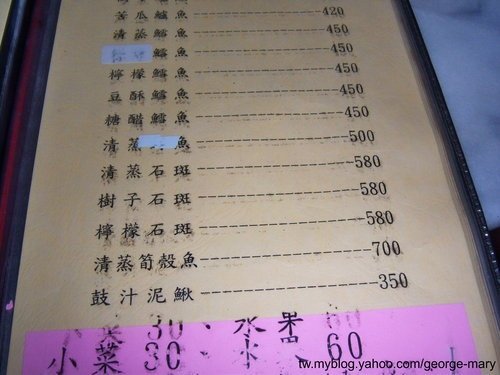 苦瓜鱸魚 420
清蒸鱸魚 450
鱈魚 450
檸檬鱈魚 450
豆酥鱈魚 450
糖醋鱈魚 450
清蒸 魚 500
清蒸石斑 580
樹子石斑 580
檸檬石斑 580
清蒸筍殼魚 700
鼓汁泥鰍 350
小菜30、水果60
tw.myblog.yahoo.com/george-mary